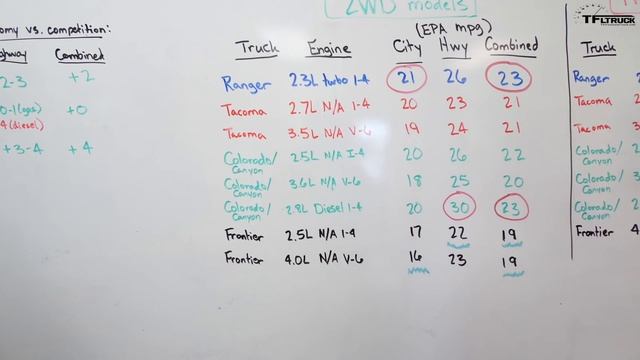 omy vs. competition:
ghway Combined
2-3 +2
0-1 (gas) +0
4 (diesel)
+3-4 +4
2WD models
(EPA mpg)
Truck Engine City Hwy Combined
Ranger 2.3L turbo I-4 21 26 23
Tacoma 2.7L N/A I-4 20 23 21
Tacoma 3.5L N/A V-6 19 24 21
Colorado/Canyon 2.5L N/A I-4 20 26 22
Colorado/Canyon 3.6L N/A V-6 18 25 20
Colorado/Canyon 2.8L Diesel I-4 20 30 23
Frontier 2.5L N/A I-4 17 22 19
Frontier 4.0L N/A V-6 16 23 19
TFLTRUCK
Truck
Ranger 2
Tacoma 2
Tacoma 3
Colorado/Canyon 2
Colorado/Canyon 3
Colorado/Canyon 2
Frontier 4